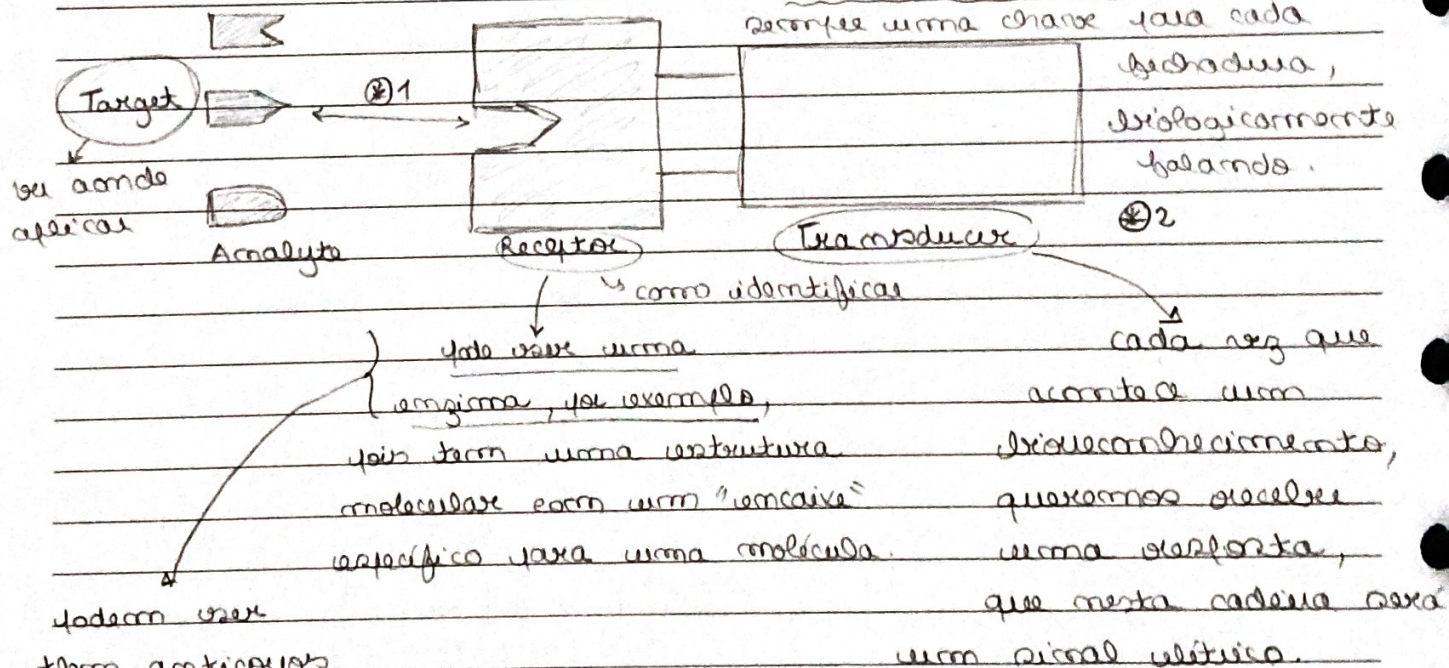 sempre uma chave para cada
fechadura,
biologicamente
falando.
Target
⊛1
ver aonde
aplicar
Analyte
Receptor
Transducer
⊛2
↳ como identificar
pode ser uma
enzima, por exemplo,
pois tem uma estrutura
molecular com um "encaixe"
específico para uma molécula.
cada vez que
acontece um
bioreconhecimento,
queremos receber
uma resposta,
que nesta cadeia será
um sinal elétrico.
podem ser